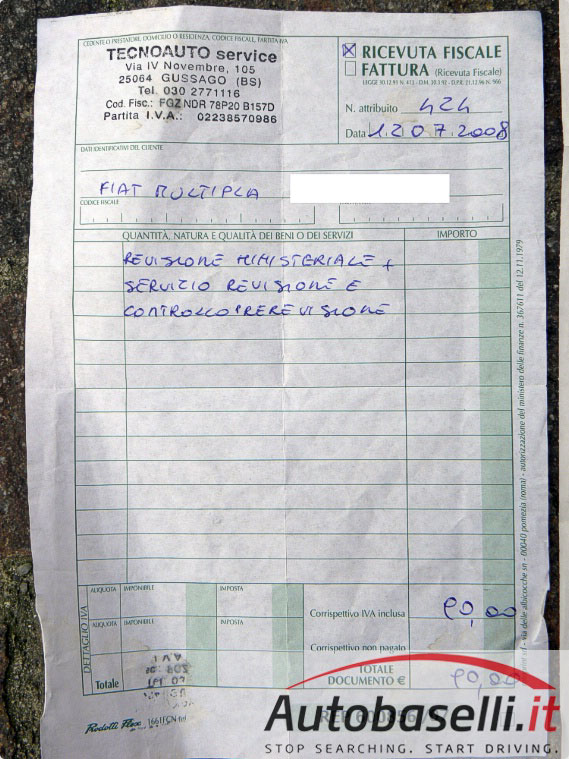 CEDENTE O PRESTATORE, DOMICILIO O RESIDENZA, CODICE FISCALE, PARTITA IVA
TECNOAUTO service
Via IV Novembre, 105
25064 GUSSAGO (BS)
Tel. 030 2771116
Cod. Fisc.: FGZ NDR 78P20 B157D
Partita I.V.A.: 02238570986
RICEVUTA FISCALE
FATTURA (Ricevuta Fiscale)
LEGGE 30.12.91 N. 413 - D.M. 30.3.92 - D.P.R. 21.12.96 N. 966
N. attribuito 424
Data 12 07 2008
DATI IDENTIFICATIVI DEL CLIENTE
FIAT MULTIPLA
CODICE FISCALE
QUANTITÀ, NATURA E QUALITÀ DEI BENI O DEI SERVIZI IMPORTO
REVISIONE MINISTERIALE +
SERVIZIO REVISIONE E
CONTROLLO PREREVISIONE
DETTAGLIO IVA
ALIQUOTA IMPONIBILE IMPOSTA
ALIQUOTA IMPONIBILE IMPOSTA
Totale
Corrispettivo IVA inclusa 90,00
Corrispettivo non pagato
TOTALE
DOCUMENTO € 90,00
Prodotti Flex 1661FCN
via delle albicocche sn - 00040 pomezia (roma) - autorizzazione del ministero delle finanze n. 367611 del 12.11.1979
Autobaselli.it
STOP SEARCHING. START DRIVING.